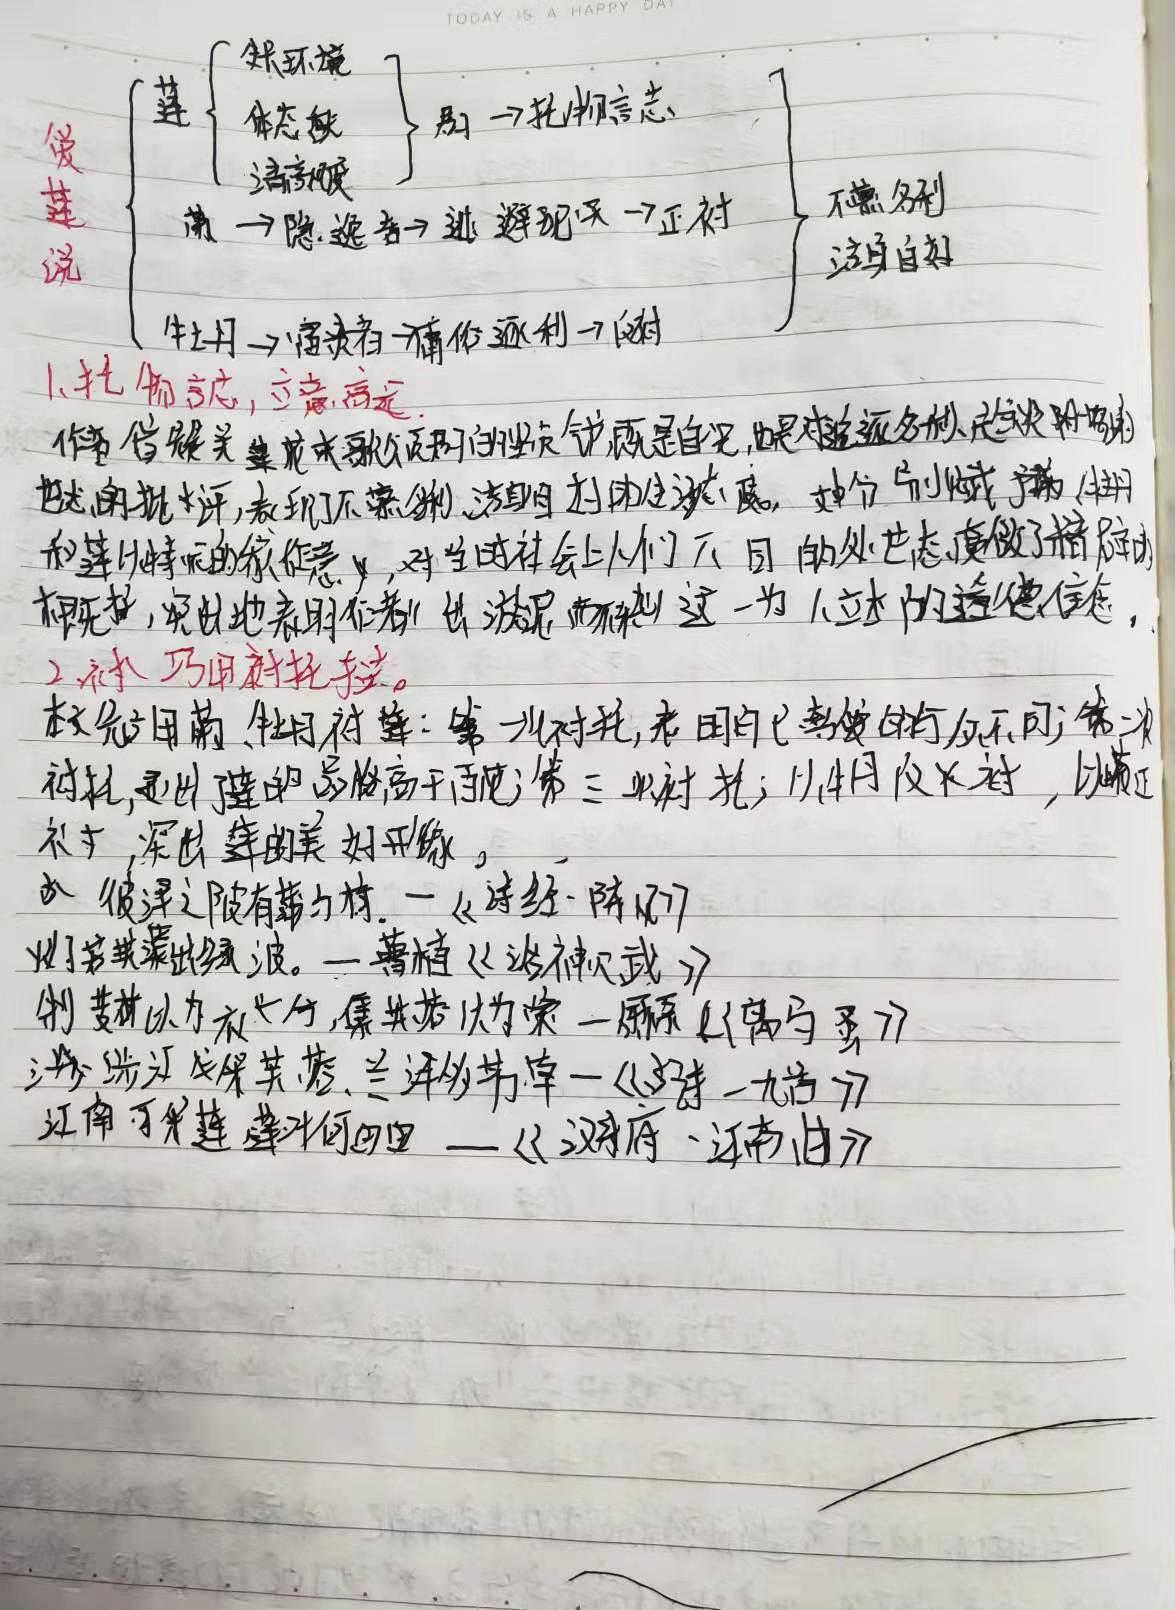 TODAY IS A HAPPY DAY
爱莲说
莲
环境
体态
君子 → 托物言志
菊 → 隐逸者 → 逃避现实 → 正衬
不慕名利
洁身自好
牡丹 → 富贵者 → 逐利 → 反衬
1、托物言志，立意高远.
作者借 莲 歌颂君子的 气 既是自况，也是对追逐名利、
世态的批评，表现了不慕名利、洁身自好的生活态度。文中分别赋予菊、牡丹
和莲以 的 意义，对当时社会上人们不同的处世态度做了精辟的
概括，突出地表明作者 出淤泥而不染 这一为人立 的道德信念.
2、 巧用衬托手法。
本文 用菊、牡丹衬莲：第一次衬托，表明自己 爱的与众不同；第二次
衬托，突出了莲的品格高于百花；第三次衬托；以牡丹反衬，以菊正
衬，突出莲的美好形象。
彼泽之陂有蒲与荷. — 《诗经·陈风》
若芙蕖出绿波。— 曹植《洛神 》
制芰荷以为衣 ，集芙蓉以为裳 — 屈原《离 骚》
涉江采芙蓉、兰泽多芳草 — 《古诗十九首》
江南可采莲 莲叶何田田 —《汉乐府·江南曲》